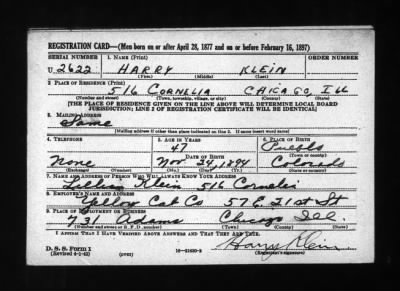 REGISTRATION CARD—(Men born on or after April 28, 1877 and on or before February 16, 1897)
SERIAL NUMBER 1. NAME (Print) ORDER NUMBER
U 2622 HARRY KLEIN
(First) (Middle) (Last)
2. PLACE OF RESIDENCE (Print)
516 CORNELIA CHICAGO, Ill
(Number and street) (Town, township, village, or city) (County) (State)
[THE PLACE OF RESIDENCE GIVEN ON THE LINE ABOVE WILL DETERMINE LOCAL BOARD
JURISDICTION; LINE 2 OF REGISTRATION CERTIFICATE WILL BE IDENTICAL]
3. MAILING ADDRESS
Same
[Mailing address if other than place indicated on line 2. If same insert word same]
4. TELEPHONE 5. AGE IN YEARS 6. PLACE OF BIRTH
47 Pueblo
DATE OF BIRTH (Town or county)
None Nov 24, 1894 Colorado
(Exchange) (Number) (Mo.) (Day) (Yr.) (State or country)
7. NAME AND ADDRESS OF PERSON WHO WILL ALWAYS KNOW YOUR ADDRESS
Lillian Klein 516 Cornelia
8. EMPLOYER'S NAME AND ADDRESS
Yellow Cab Co 57 E. 21st St
9. PLACE OF EMPLOYMENT OR BUSINESS
731 Adams Chicago Ill.
(Number and street or R. F. D. number) (Town) (County) (State)
I AFFIRM THAT I HAVE VERIFIED ABOVE ANSWERS AND THAT THEY ARE TRUE.
D. S. S. Form 1
(Revised 4-1-42) (over) 16—21630-2 Harry Klein
(Registrant's signature)